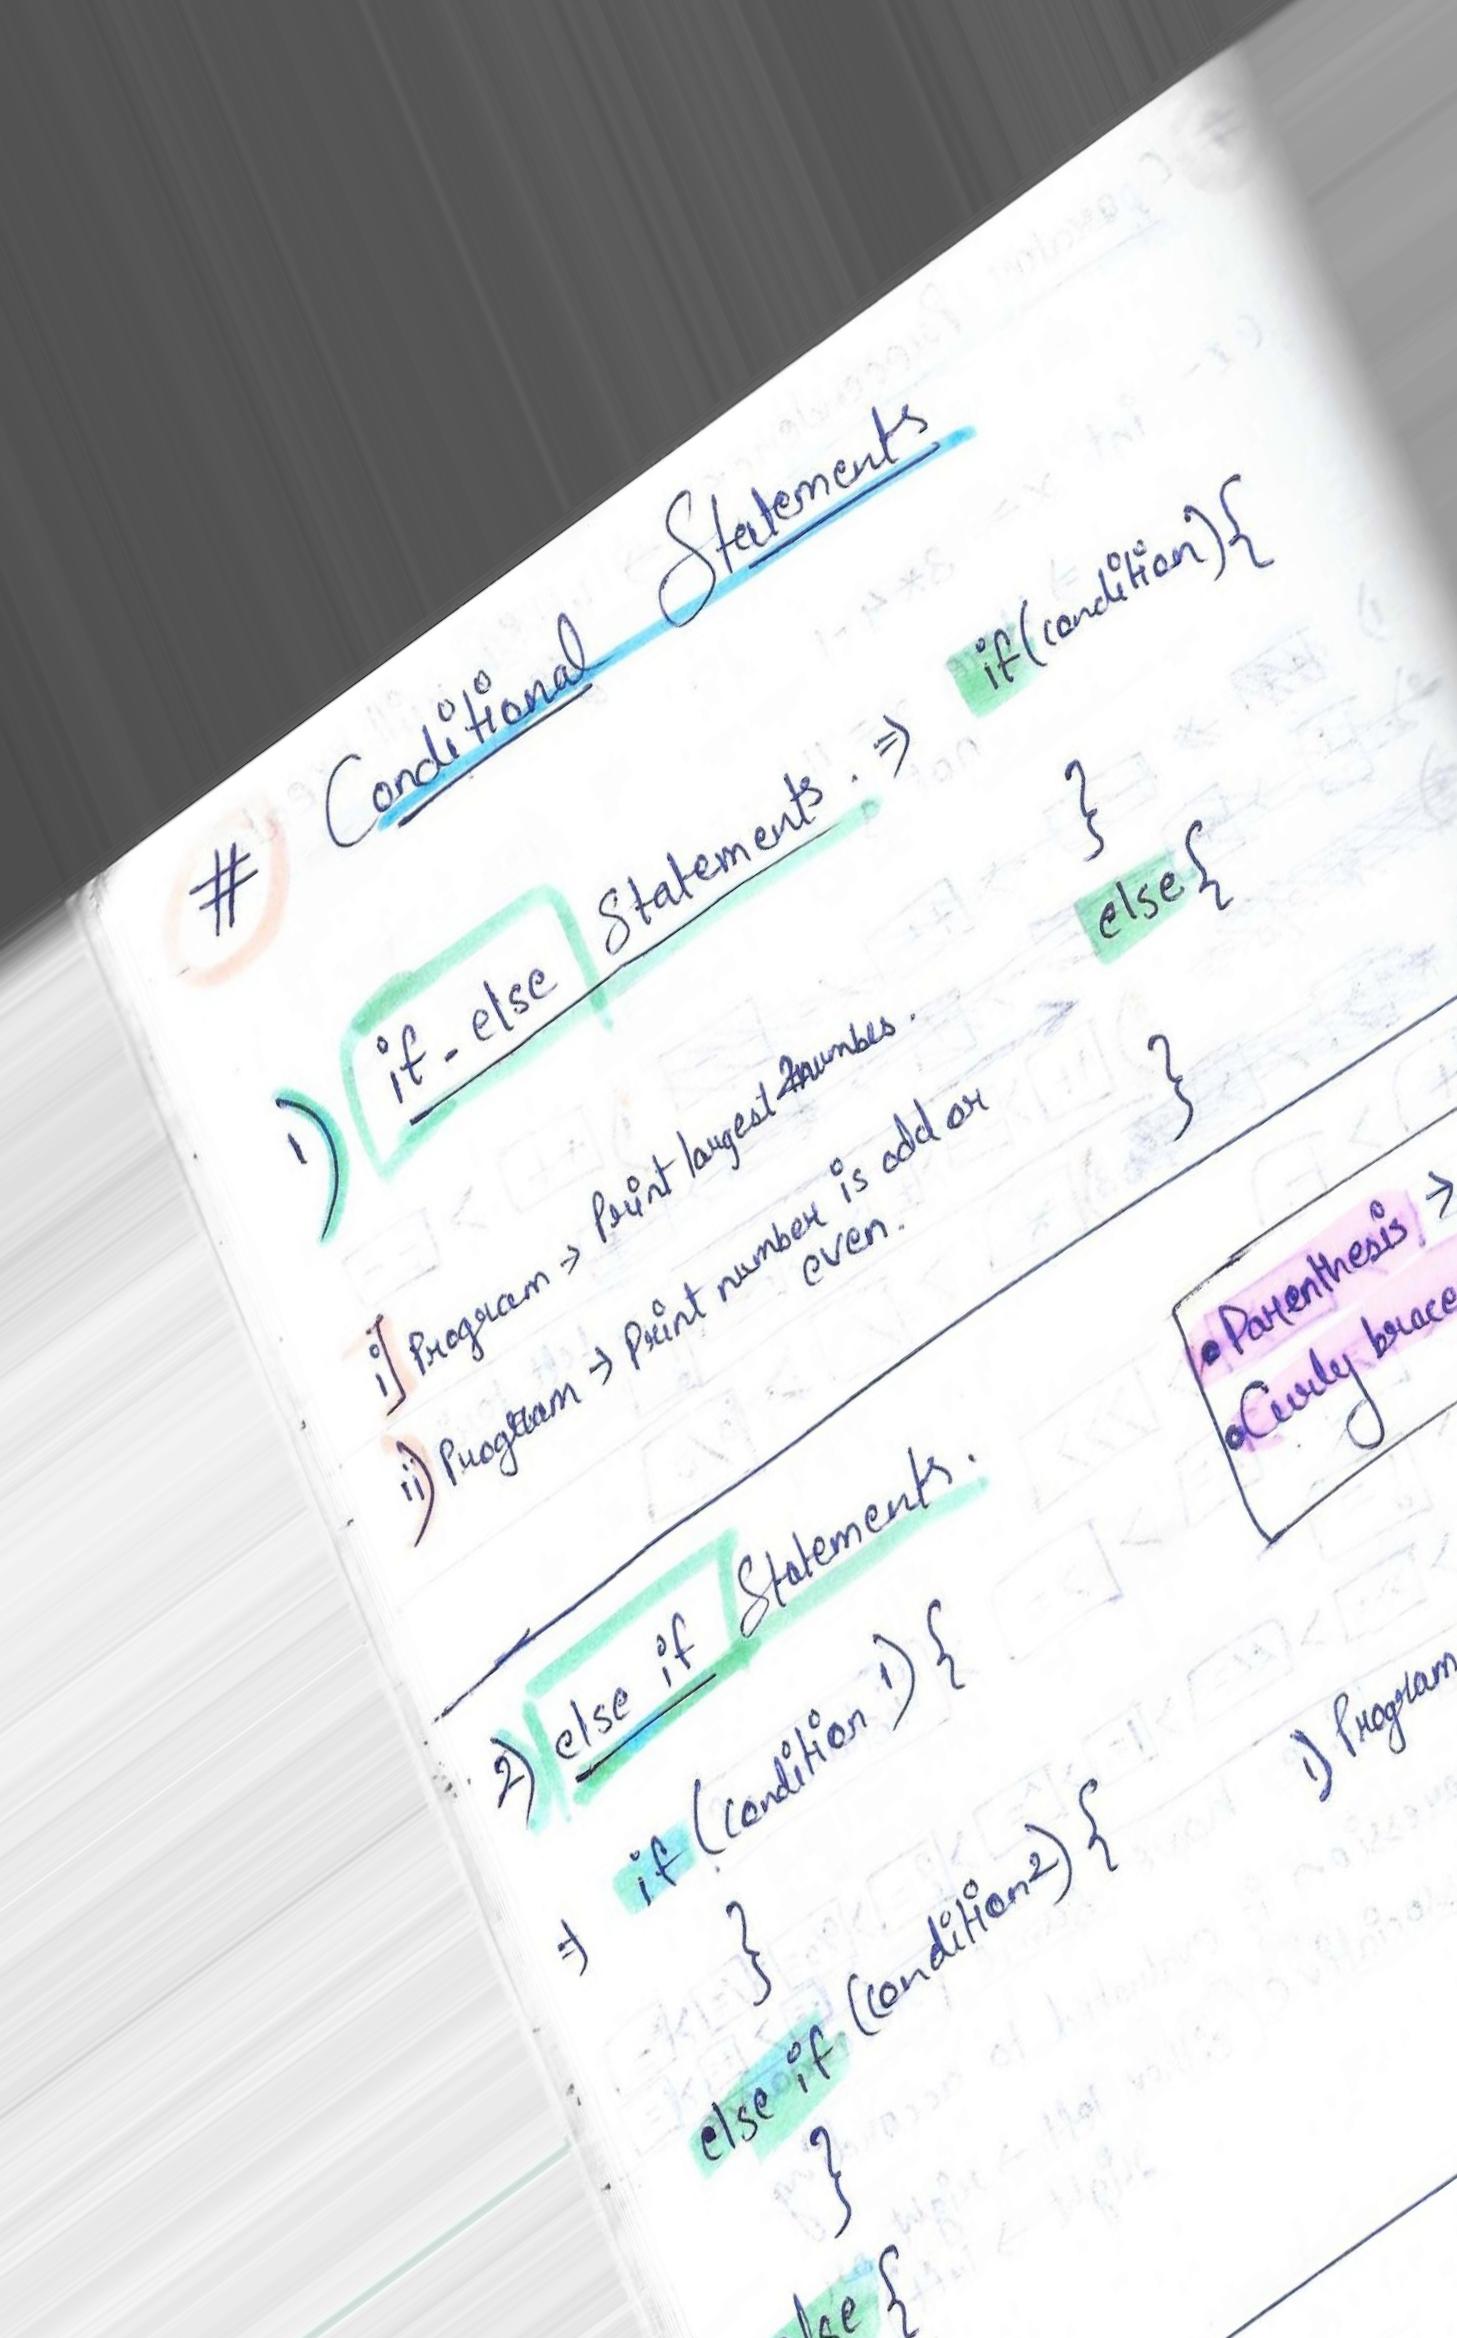 # Conditional Statements
1) if-else Statements. ⇒ if(condition){
}
else{
}
i] Program → Print largest 2 number.
ii) Program → Print number is odd or
even.
• Parenthesis →
• Curly brace
2) else if Statements.
⇒ if (condition 1) {
}
else if (condition 2) {
}
else {
i) Program